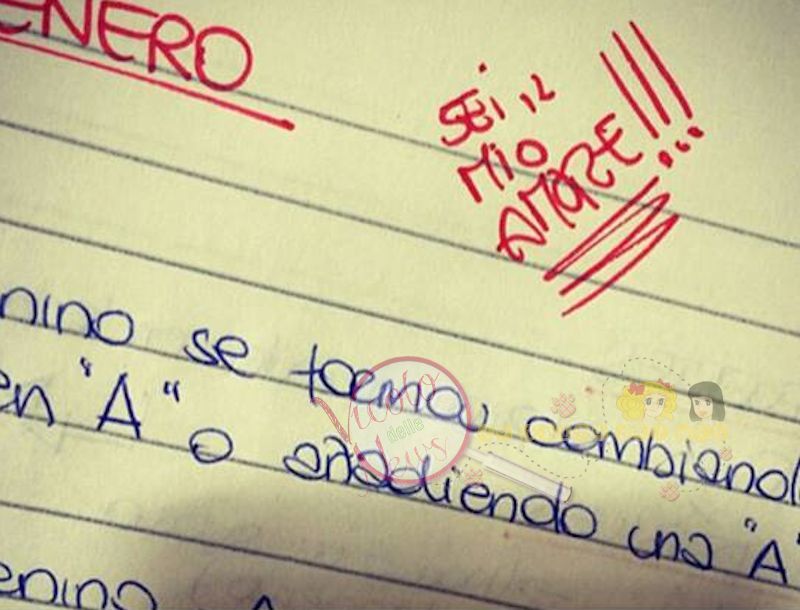 ENERO
SEI IL
MIO
AMORE!!!...
nino se forma cambiand
en "A" o añadiendo una "A"
enino
Vicolo
delle
News